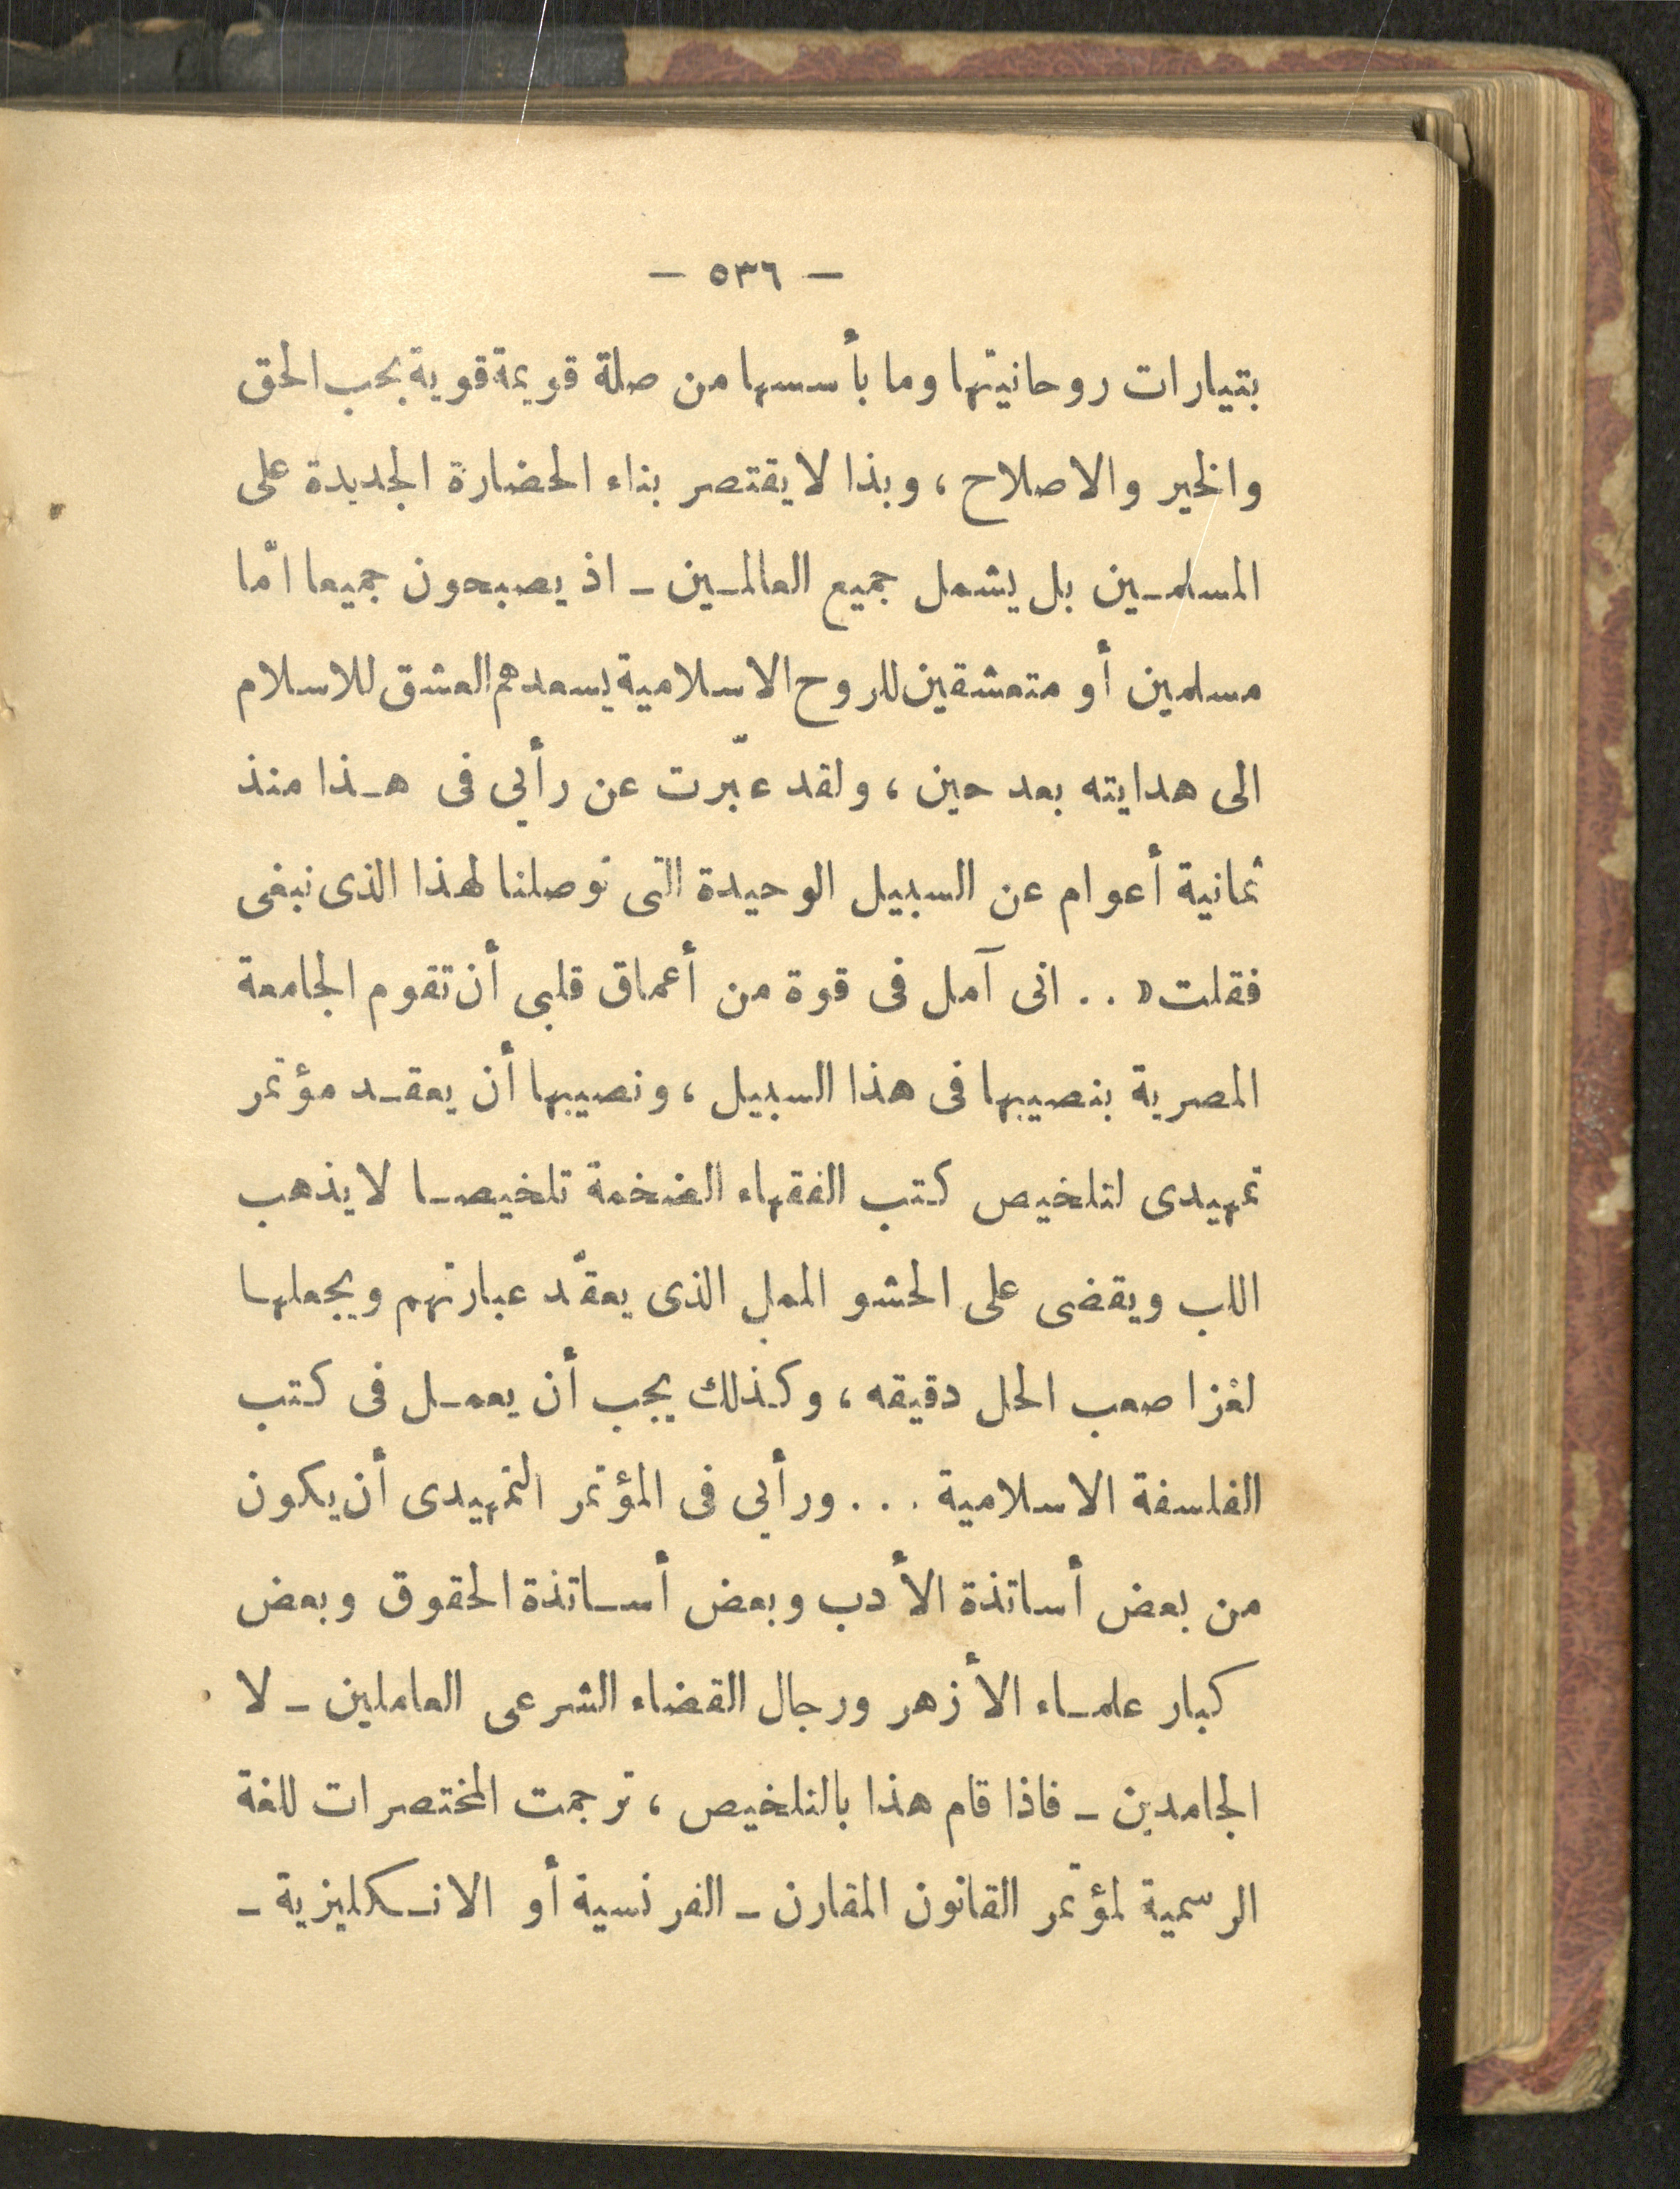 — ٥٣٦ —
بتيارات روحانيتها وما بأسسها من صلة قويمة قوية بحب الحق
والخير والاصلاح ، وبذا لا يقتصر بناء الحضارة الجديدة على
المسلمين بل يشمل جميع العالمين ـ اذ يصبحون جميعا امّا
مسلمين أو متعشقين للروح الاسلامية يسعدهم العشق للاسلام
الى هدايته بعد حين ، ولقد عبّرت عن رأيي فى هذا منذ
ثمانية أعوام عن السبيل الوحيدة التى توصلنا لهذا الذى نبغى
فقلت « . . انى آمل فى قوة من أعماق قلبى أن تقوم الجامعة
المصرية بنصيبها فى هذا السبيل ، ونصيبها أن يعقد مؤتمر
تمهيدى لتلخيص كتب الفقهاء الضخمة تلخيصا لا يذهب
اللب ويقضى على الحشو الممل الذى يعقّد عبارتهم ويجعلها
لغزا صعب الحل دقيقه ، وكذلك يجب أن يعمل فى كتب
الفلسفة الاسلامية . . . ورأيي فى المؤتمر التمهيدى أن يكون
من بعض أساتذة الأدب وبعض أساتذة الحقوق وبعض
كبار علماء الأزهر ورجال القضاء الشرعى العاملين ـ لا
الجامدين ـ فاذا قام هذا بالتلخيص ، ترجمت المختصرات للغة
الرسمية لمؤتمر القانون المقارن ـ الفرنسية أو الانكليزية ـ